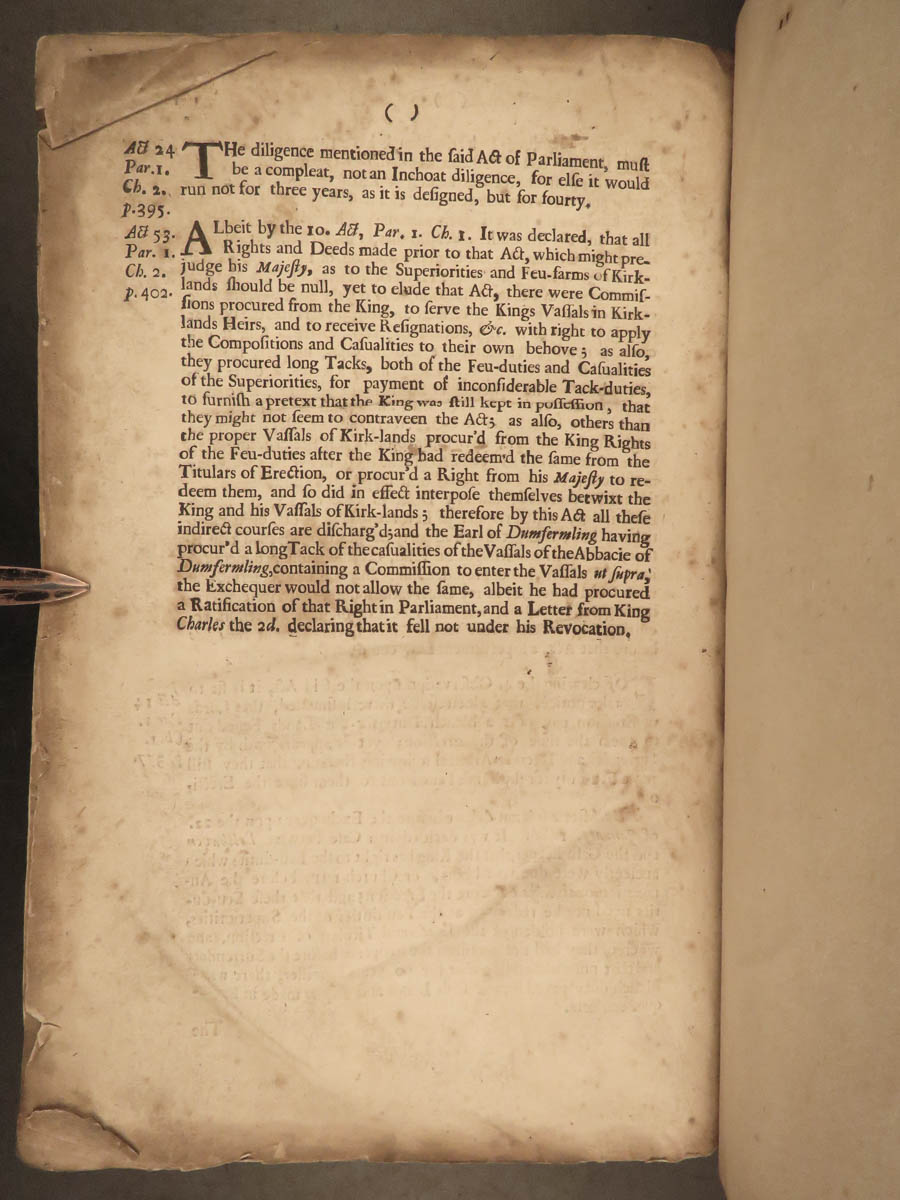 ( )
Act 24
Par. 1.
Ch. 2.
p. 395.
THe diligence mentioned in the ſaid Act of Parliament, muſt
be a compleat, not an Inchoat diligence, for elſe it would
run not for three years, as it is deſigned, but for fourty.
Act 53.
Par. 1.
Ch. 2.
p. 402.
ALbeit by the 10. Act, Par. 1. Ch. 1. It was declared, that all
Rights and Deeds made prior to that Act, which might pre-
judge his Majeſty, as to the Superiorities and Feu-farms of Kirk-
lands ſhould be null, yet to elude that Act, there were Commiſ-
ſions procured from the King, to ſerve the Kings Vaſſals in Kirk-
lands Heirs, and to receive Reſignations, &c. with right to apply
the Compoſitions and Caſualities to their own behove; as alſo,
they procured long Tacks, both of the Feu-duties and Caſualities
of the Superiorities, for payment of inconſiderable Tack-duties,
to furniſh a pretext that the King was ſtill kept in poſſeſſion, that
they might not ſeem to contraveen the Act; as alſo, others than
the proper Vaſſals of Kirk-lands procur'd from the King Rights
of the Feu-duties after the King had redeem'd the ſame from the
Titulars of Erection, or procur'd a Right from his Majeſty to re-
deem them, and ſo did in effect interpoſe themſelves betwixt the
King and his Vaſſals of Kirk-lands; therefore by this Act all theſe
indirect courſes are diſcharg'd; and the Earl of Dumfermling having
procur'd a long Tack of the caſualities of the Vaſſals of the Abbacie of
Dumfermling, containing a Commiſſion to enter the Vaſſals ut ſupra,
the Exchequer would not allow the ſame, albeit he had procured
a Ratification of that Right in Parliament, and a Letter from King
Charles the 2d. declaring that it fell not under his Revocation.